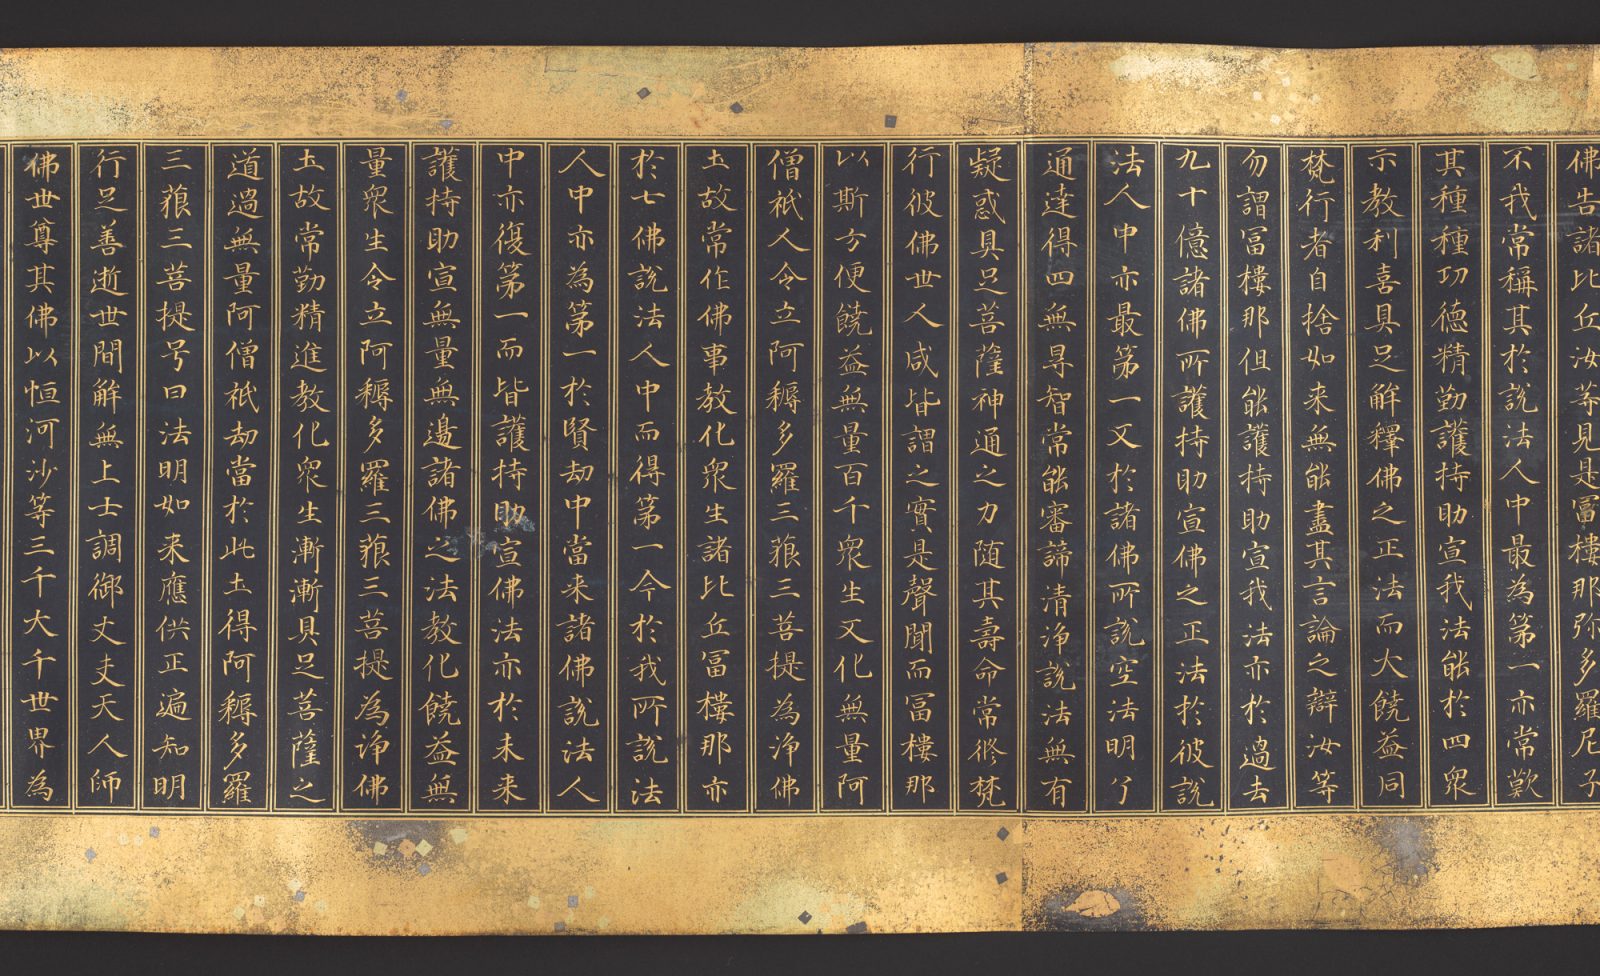 佛告諸比丘汝等見是冨樓那弥多羅尼子
不我常稱其於說法人中最為第一亦常歎
其種種功德精勤護持助宣我法能於四衆
示教利喜具足解釋佛之正法而大饒益同
梵行者自捨如来無能盡其言論之辯汝等
勿謂冨樓那但能護持助宣我法亦於過去
九十億諸佛所護持助宣佛之正法於彼說
法人中亦最第一又於諸佛所說空法明了
通達得四無㝵智常能審諦清淨說法無有
疑惑具足菩薩神通之力随其壽命常修梵
行彼佛世人咸皆謂之實是聲聞而冨樓那
以斯方便饒益無量百千衆生又化無量阿
僧祇人令立阿耨多羅三藐三菩提為淨佛
土故常作佛事教化衆生諸比丘冨樓那亦
於七佛說法人中而得第一今於我所說法
人中亦為第一於賢劫中當来諸佛說法人
中亦復第一而皆護持助宣佛法亦於未来
護持助宣無量無邊諸佛之法教化饒益無
量衆生令立阿耨多羅三藐三菩提為淨佛
土故常勤精進教化衆生漸漸具足菩薩之
道過無量阿僧祇劫當於此土得阿耨多羅
三藐三菩提号曰法明如来應供正遍知明
行足善逝世間解無上士調御丈夫天人師
佛世尊其佛以恒河沙等三千大千世界為